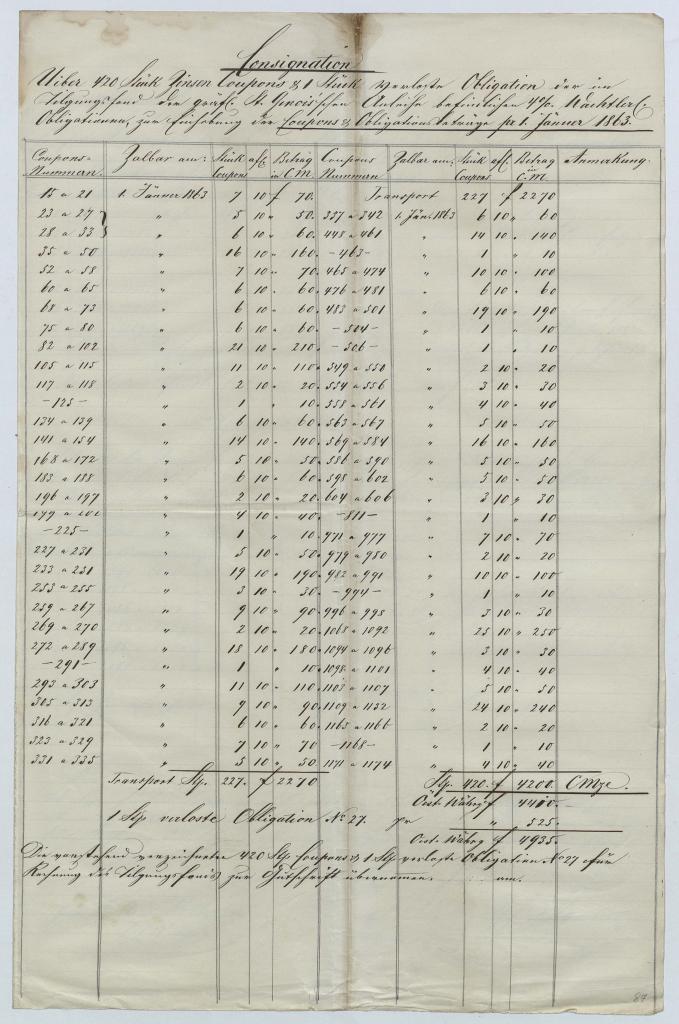 Consignation
Uiber 420 Stück Zinsen Coupons & 1 Stück verloste Obligation der im
Tilgungsfond der gräfl. St. Genois'schen Anleihe befindlichen 4%
Obligationen, zur Einhebung der Coupons & Obligationsbeträge pr 1. Jänner 1863.
Coupons- Zalbar am: Stück a f. C. Betrag Coupons Zalbar am: Stück a f. C. Betrag Anmerkung.
Nummern. Coupons in C.M. Nummern Coupons in C.M.
15 a 21 1. Jänner 1863 7 10 f 70. Transport 227 f 2270
23 a 27 " 5 10 " 50. 337 a 342 1. Jän. 1863 6 10 " 60
28 a 33 " 6 10 " 60. 448 a 461 " 14 10 " 140
35 a 50 " 16 10 " 160. -463- " 1 " 10
52 a 58 " 7 10 " 70. 465 a 474 " 10 10 " 100
60 a 65 " 6 10 " 60. 476 a 481 " 6 10 " 60
68 a 73 " 6 10 " 60. 483 a 501 " 19 10 " 190
75 a 80 " 6 10 " 60. -504- " 1 " 10
82 a 102 " 21 10 " 210. -506- " 1 " 10
105 a 115 " 11 10 " 110. 549 a 550 " 2 10 " 20
117 a 118 " 2 10 " 20. 554 a 556 " 3 10 " 30
-125- " 1 " 10. 558 a 561 " 4 10 " 40
134 a 139 " 6 10 " 60. 563 a 567 " 5 10 " 50
141 a 154 " 14 10 " 140. 569 a 584 " 16 10 " 160
168 a 172 " 5 10 " 50. 586 a 590 " 5 10 " 50
183 a 188 " 6 10 " 60. 598 a 602 " 5 10 " 50
196 a 197 " 2 10 " 20. 604 a 606 " 3 10 " 30
" 4 10 " 40. -811- " 1 " 10
-225- " 1 " 10. 971 a 977 " 7 10 " 70
227 a 231 " 5 10 " 50. 979 a 980 " 2 10 " 20
233 a 251 " 19 10 " 190. 982 a 991 " 10 10 " 100
253 a 255 " 3 10 " 30. -994- " 1 " 10
259 a 267 " 9 10 " 90. 996 a 998 " 3 10 " 30
269 a 270 " 2 10 " 20. 1068 a 1092 " 25 10 " 250
272 a 289 " 18 10 " 180. 1094 a 1096 " 3 10 " 30
-291- " 1 " 10. 1098 a 1101 " 4 10 " 40
293 a 303 " 11 10 " 110. 1103 a 1107 " 5 10 " 50
305 a 313 " 9 10 " 90. 1109 a 1132 " 24 10 " 240
316 a 321 " 6 10 " 60. 1165 a 1166 " 2 10 " 20
323 a 329 " 7 10 " 70 -1168- " 1 " 10
331 a 335 " 5 10 " 50 1171 a 1174 " 4 10 " 40
Transport Stp. 227. f 2270 Stp. 420. f 4200. CMze.
Oest. Währg f 4410.-
1 Stp verloste Obligation No 27. pr " 525.-
Oest. Währg f 4935.-
Die vorstehend verzeichneten 420 Stp Coupons & 1 Stp verloste Obligation No 27 für
Rechnung des Tilgungsfonds zur Gutschrift übernommen. am.